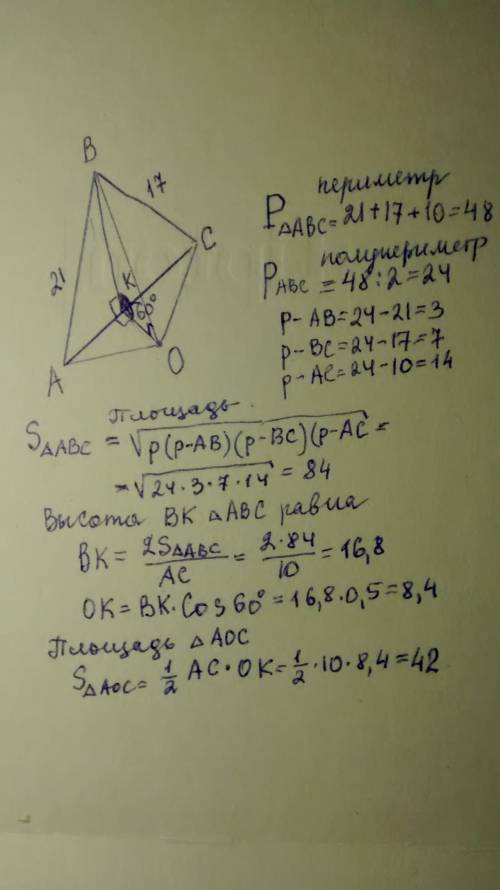 B
17
C
21
K
60°
A
O
периметр
P△ABC = 21+17+10=48
полупериметр
PABC = 48:2=24
p-AB=24-21=3
p-BC=24-17=7
p-AC=24-10=14
Площадь.
S△ABC = √p(p-AB)(p-BC)(p-AC =
=√24·3·7·14 = 84
Высота BK △ABC равна
BK= 2S△ABC/AC = 2·84/10 = 16,8
OK=BK·Cos60°=16,8·0,5=8,4
Площадь △AOC
S△AOC= 1/2 AC·OK= 1/2 ·10·8,4=42